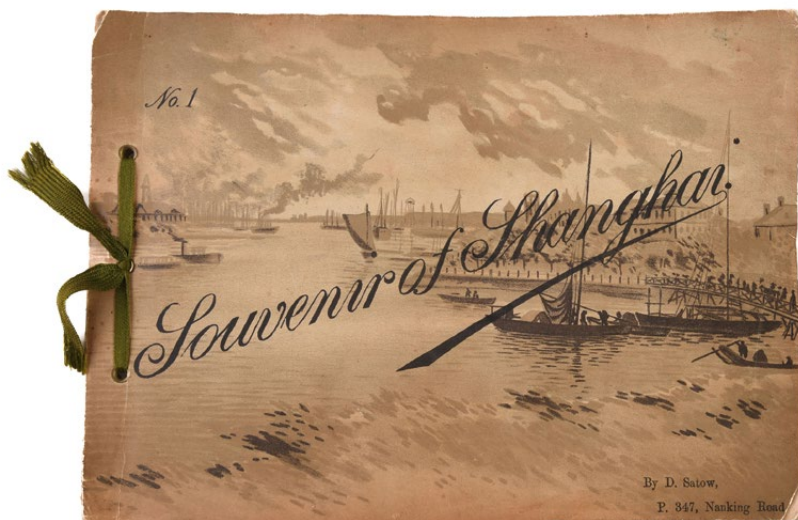 No. 1
Souvenir of Shanghai.
By D. Satow,
P. 347, Nanking Road